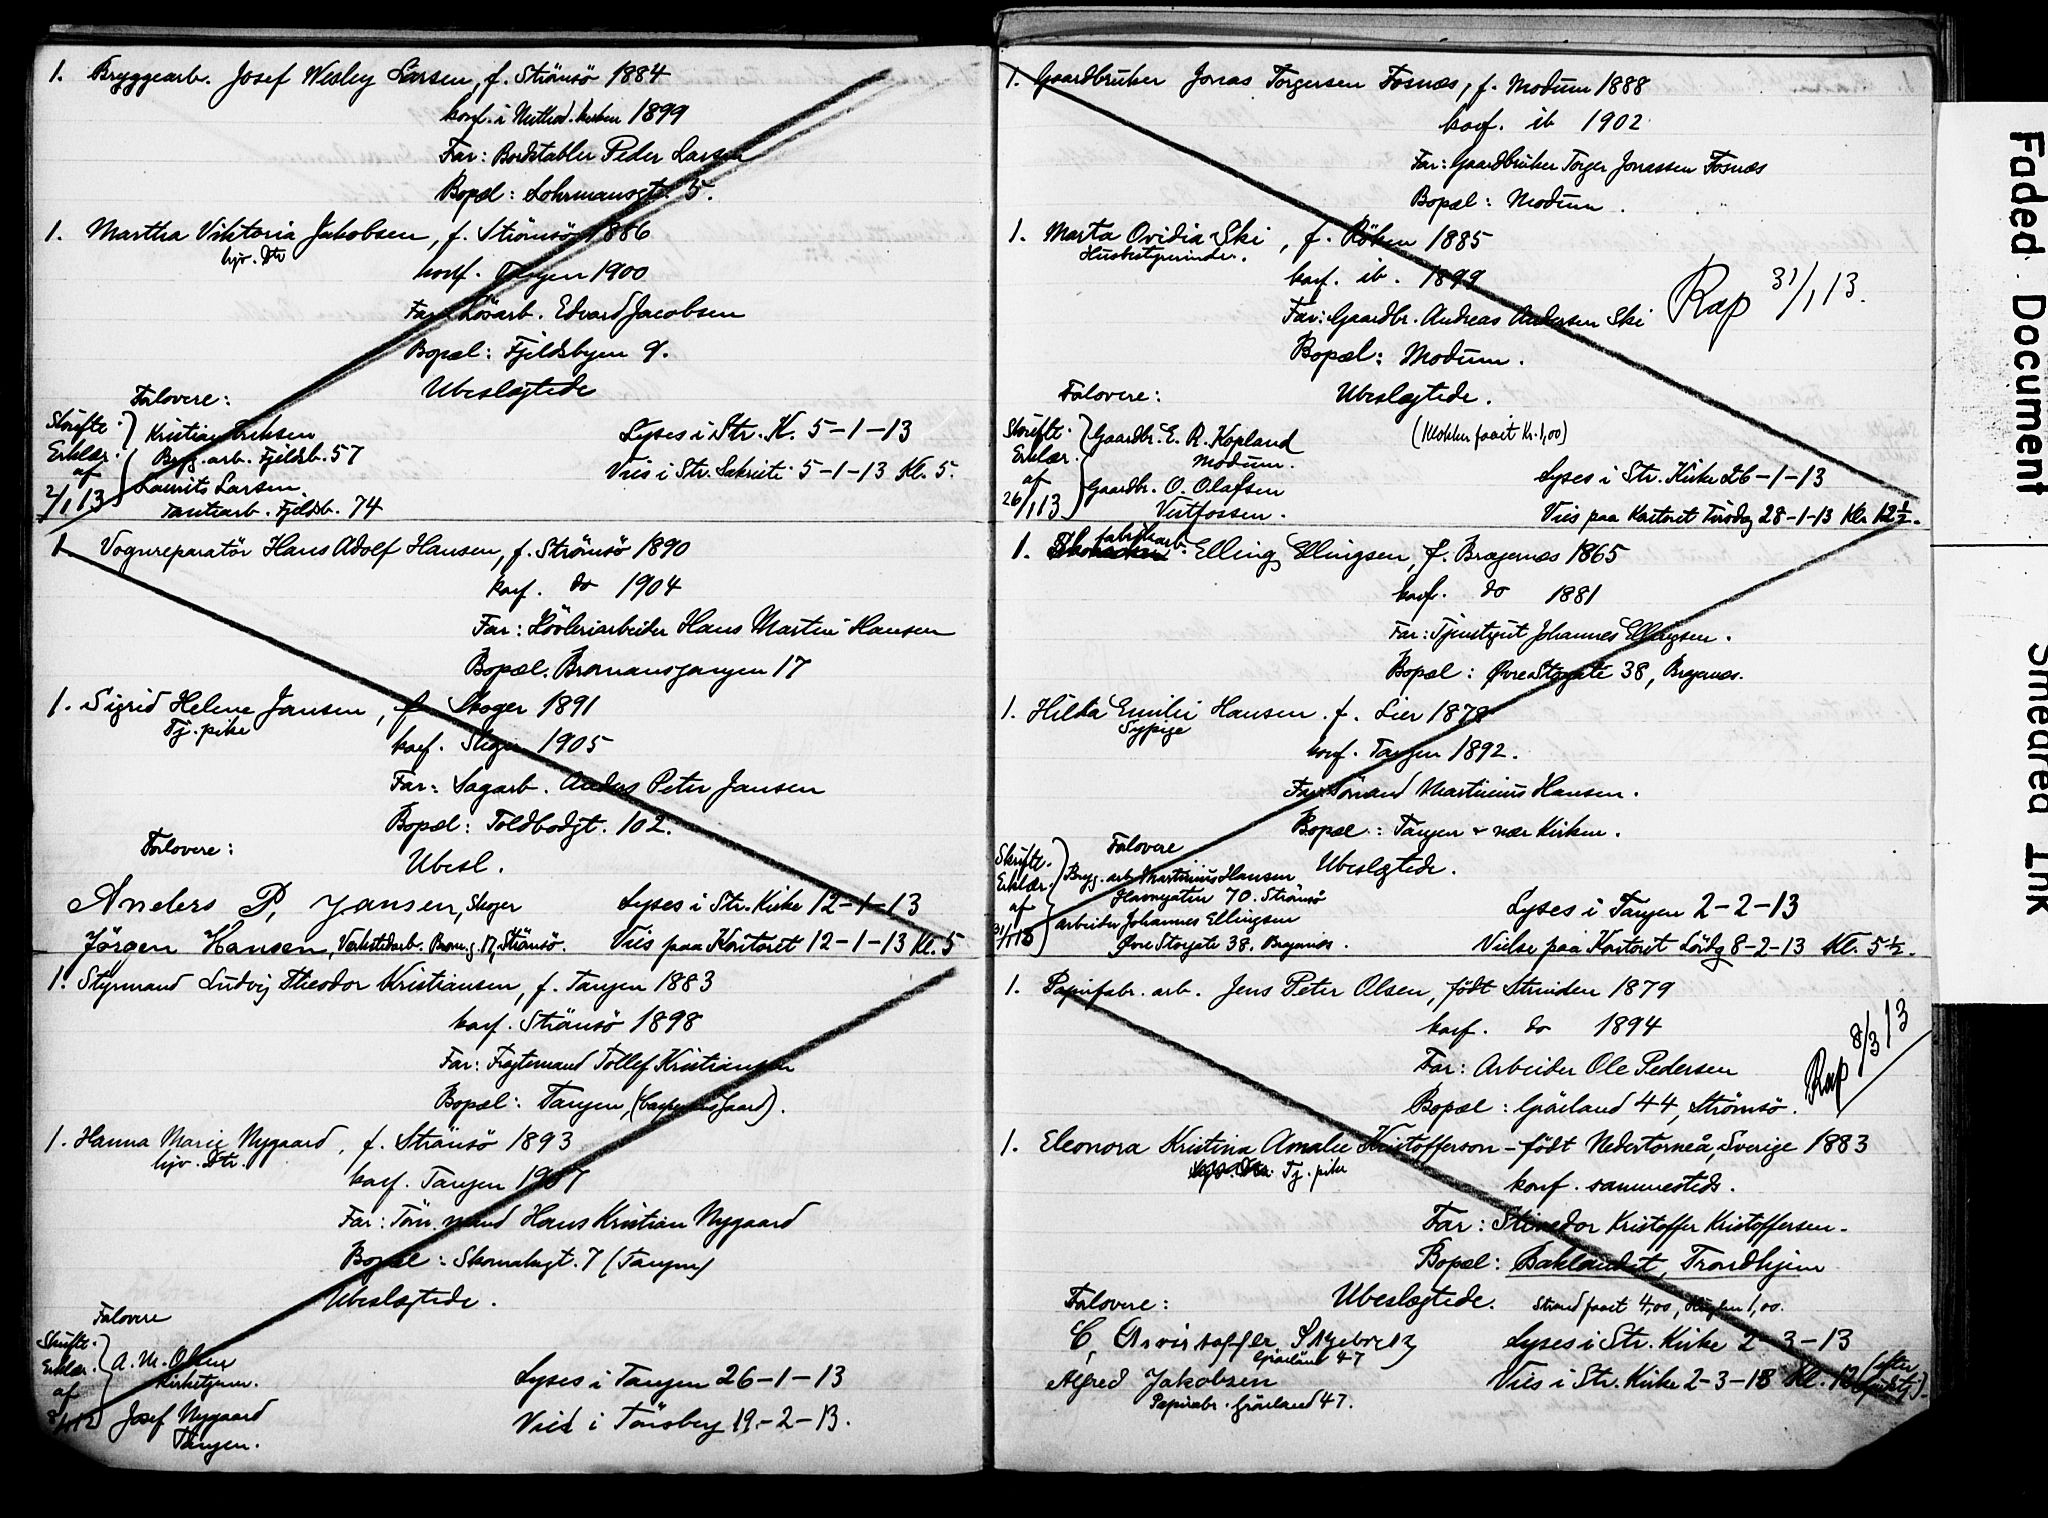 1. Bryggearb. Josef Wesley Larsen, f. Strömsö 1884
konf. i Method. kirken 1899
Far: Bordstabler Peder Larsen
Bopæl: Lohrmansgt. 5.
1. Martha Viktoria Jakobsen, f. Strömsö 1886
hjv. Dtr
konf. Tangen 1900
Far: Lösarb. Edvard Jacobsen
Bopæl: Fjeldsbyen 9.
Ubeslægtede
Forlovere:
Skriftl. Erklær. af 2/1 13
Kristian Eriksen
Bryg. arb. Fjeldsb. 57
Laurits Larsen
Tomtearb. Fjeldsb. 74
Lyses i Str. K. 5-1-13
Vies i Str. Sakristi 5-1-13 Kl. 5.
1. Vognreparatör Hans Adolf Hansen, f. Strömsö 1890
konf. do 1904
Far: Hövleriarbeider Hans Martin Hansen
Bopæl. Bromansgangen 17
1. Sigrid Helene Jansen, f. Skoger 1891
Tj. pike
konf. Skoger 1905
Far: Sagarb. Anders Peter Jansen
Bopæl: Toldbodgt. 102.
Forlovere:
Ubesl.
Anders P. Jansen, Skoger
Jörgen Hansen, Verkstedarb. Brom.g. 17, Strömsö.
Lyses i Str. Kirke 12-1-13
Vies paa Kontoret 12-1-13 Kl. 5
1. Styrmand Ludvig Theodor Kristiansen, f. Tangen 1883
konf. Strömsö 1898
Far: Fragtemand Tollef Kristiansen
Bopæl: Tangen,
1. Hanna Marie Nygaard, f. Strömsö 1893
hjv. Dtr.
konf. Tangen 1907
Far: Töm. mand Hans Kristian Nygaard
Bopæl: Skomakgt. 7 (Tangen)
Ubeslægtede.
Forlovere
Skriftl. Erklær. af
A. M. Olsen
Kirketjener.
Josef Nygaard
Tangen.
Lyses i Tangen 26-1-13
Vies i Tönsberg 19-2-13.
1. Gaardbruker Jonas Torgersen Fosnæs, f. Modum 1888
konf. ib 1902
Far: Gaardbruker Torger Jonassen Fosnæs
Bopæl: Modum.
1. Marta Ovidia Ski, f. Röken 1885
Husbestyrerinde.
konf. ib. 1899
Far: Gaardbr. Andreas Andersen Ski
Bopæl: Modum.
Rap 31/1 13.
Forlovere:
Ubeslægtede.
Skriftl. Erklær. af 26/1 13
Gaardbr. E. R. Kopland
Modum.
Gaardbr. O. Olafsen
Vestfossen.
(Klokker faaet Kr. 1,00)
Lyses i Str. Kirke 26-1-13
Vies paa Kontoret Tirsdag 28-1-13 Kl. 12½.
1. fabrikarb. Elling Ellingsen, f. Bragernæs 1865
konf. do 1881
Far: Tjenstgut Johannes Ellingsen.
Bopæl: Øvre Storgate 38, Bragernæs.
1. Hilda Emilie Hansen. f. Lier 1878
Sypige
konf. Tangen 1892.
Far: Sömand Martinius Hansen.
Bopæl: Tangen nær Kirken.
Forlovere
Ubeslægtede.
Skriftl. Erklær. af
Bryg. arb. Martinius Hansen
Havnegaten 70. Strömsö
Arbeider Johannes Ellingsen
Øvre Storgate 38. Bragernæs.
Lyses i Tangen 2-2-13
Vielse paa Kontoret Lördg 8-2-13 Kl. 5½.
1. Papirfabr. arb. Jens Peter Olsen, födt Strinden 1879
konf. do 1894
Far: Arbeider Ole Pedersen
Bopæl: Grönland 44, Strömsö.
Rap 8/3 13
1. Eleonora Kristina Amalie Kristofferson - födt Nedertorneå, Sverige 1883
Tj. pike
konf. sammesteds.
Far: Stuedor Kristoffer Kristoffersen.
Bopæl: Baklandet, Trondhjem
Forlovere:
Ubeslægtede.
Strand faaet 4,00, 1,00.
C. Kristoffer
Grönland 47
Alfred Jakobsen
Papirabr. Grönland 47.
Lyses i Str. Kirke 2-3-13
Vies i Str. Kirke 2-3-13 Kl. 12 (efter
Faded Document
Smeared Ink